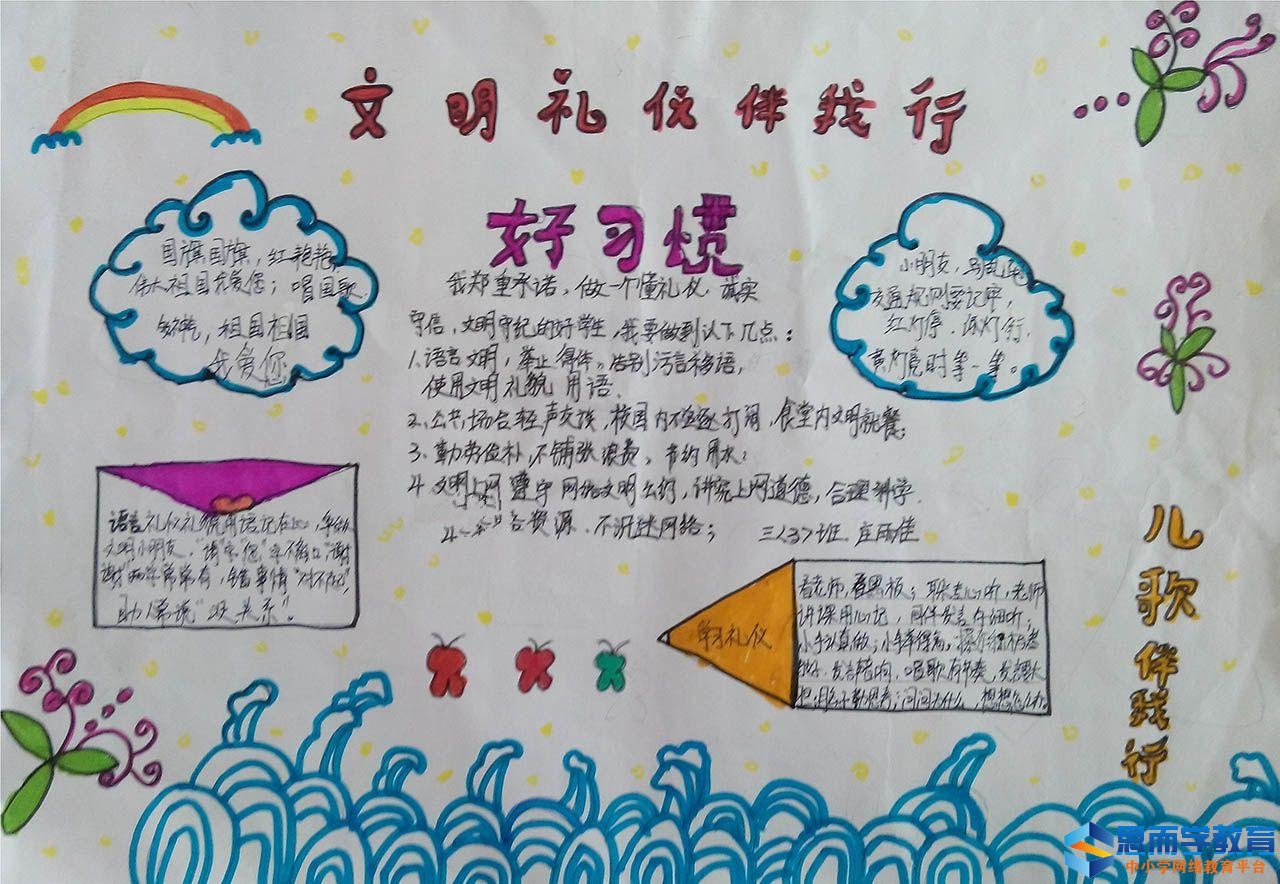 文明礼仪伴我行
国旗国旗，红艳艳，
伟大祖国我爱您；唱国歌
祖国祖国
我爱您
好习惯
我郑重承诺，做一个懂礼仪、诚实
守信，文明守纪的好学生，我要做到以下几点：
1、语言文明，举止得体。告别污言秽语，
使用文明礼貌 用语.
2、公共场合轻声交谈，校园内不追逐打闹，食堂内文明就餐；
3、勤劳俭朴，不铺张浪费，节约用水；
4 文明上网 遵守网络文明公约，讲究上网道德，合理科学
资源、不沉迷网络；
三（3）班
小朋友，马路
交通规则要记牢，
红灯停，绿灯行，
黄灯亮时等一等。
语言礼仪礼貌用语记在心，争做
文明小朋友，"请"字"您"字不离口，"谢
谢"两字常常有，错事情"对不起"，
助人常说"没关系"！
学习礼仪
看老师，看黑板；耳朵专心听，老师
讲课用心记，同伴发言仔细听；
唱歌有节奏
问问为什么，想想怎么办
儿歌伴我行
思而学教育
中小学网络教育平台